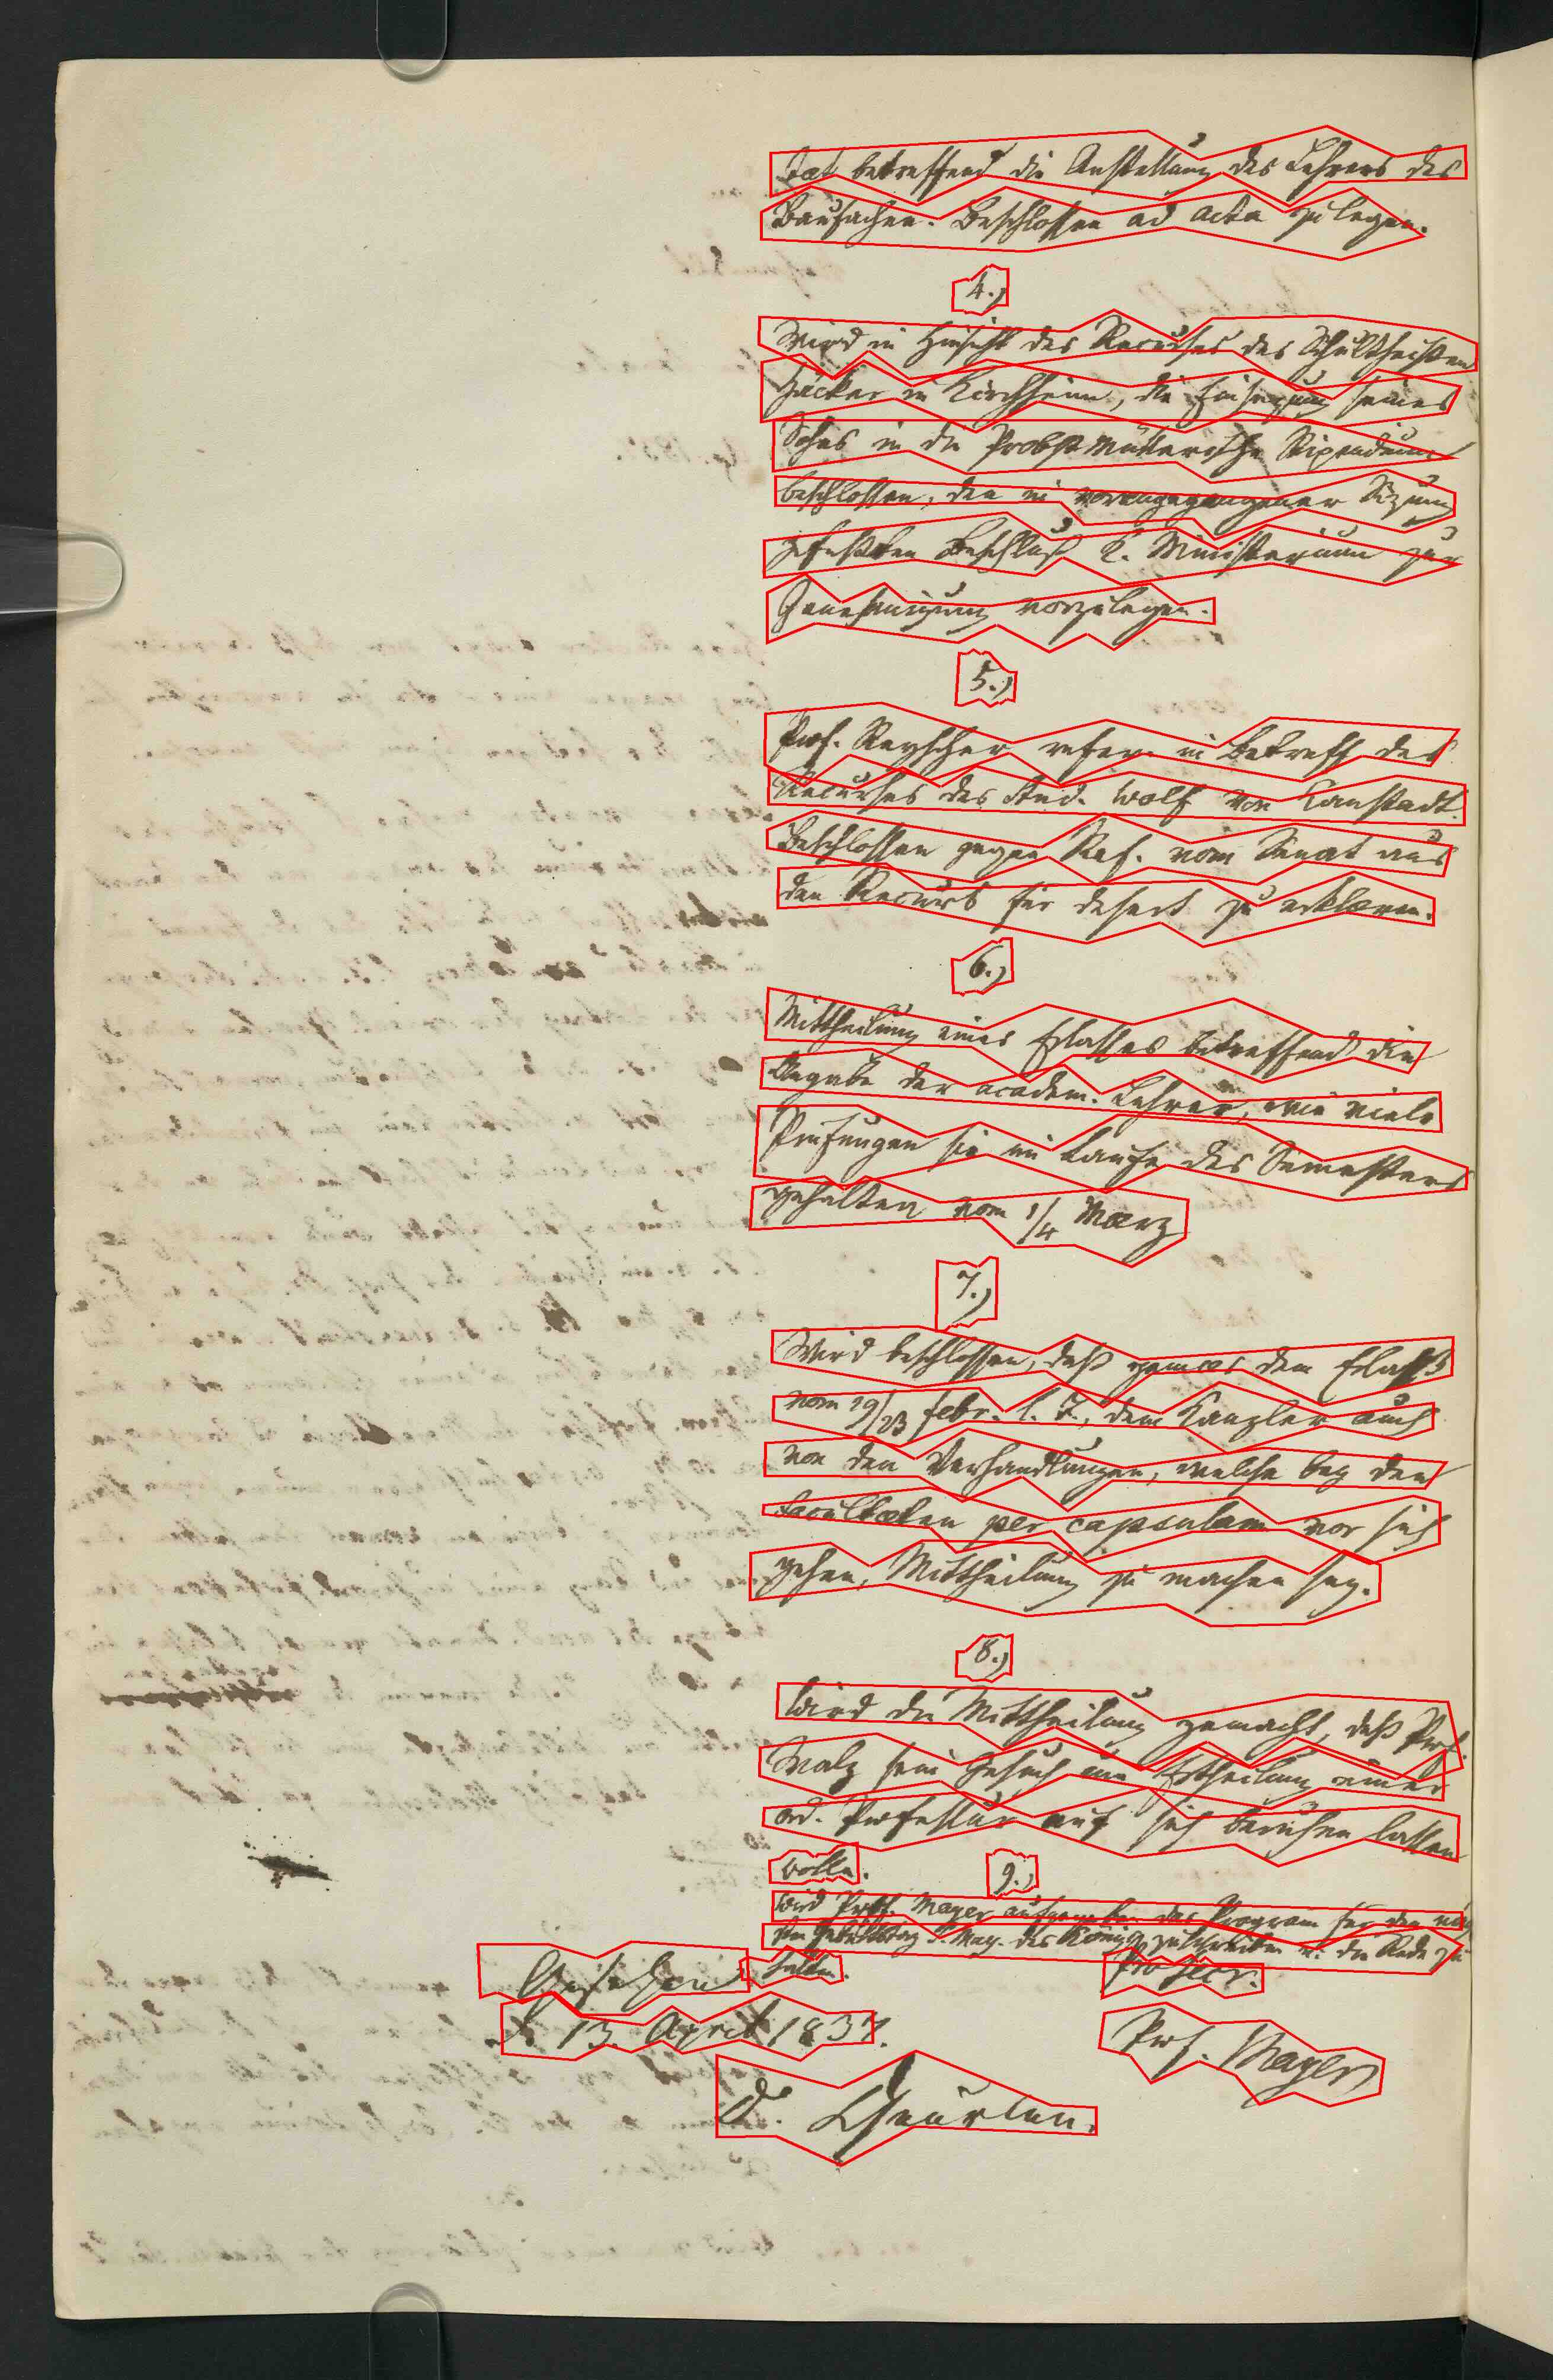 tat betreffend die Anstellung des Lehrers des
Baufaches. Beschlossen ad acta zu legen.
4.)
Wird in Hinsicht des Recurses des Schultheißen
Häcker in Kirchheim, die Einsezung seines
Sohns in die Probst-Müllerische Stipendium
beschlossen, den in vorangegangener Sizung
gefaßten Beschluß K. Ministerium zur
Genehmigung vorzulegen.
5.)
Prof. Reyscher refer. in Betreff des
Recurses des Stud. Wolf von Canstadt.
Beschlossen gegen Ref. vom Senat aus
den Recurs für desert zu erklæren.
6.)
Mittheilung eines Erlasses betreffend die
Angabe der academ. Lehrer, wie viele
Prüfungen sie im Laufe des Semesters
gehalten vom 1/4 Mærz
7.)
Wird beschlossen, daß gemæs dem Erlaß
vom 19/23 Febr. l. J., dem Kanzler auch
von den Verhandlungen, welche bey den
Facultæten per capsulam vor sich
gehen, Mittheilung zu machen sey.
8.)
Wird die Mittheilung gemacht, daß Prof.
Walz sein Gesuch um Ertheilung einer
ord. Professur auf sich beruhen lassen
wolle.
9.)
Wird Prof. Mayer aufgegeben das Program für den
Geburtstag S. Maj. des Königs zu schreiben u. die Rede zu
halten.
Gesehen
d. 13. April 1837.
Pro Secr.
Prof. Mayer
D. Scheurlen.